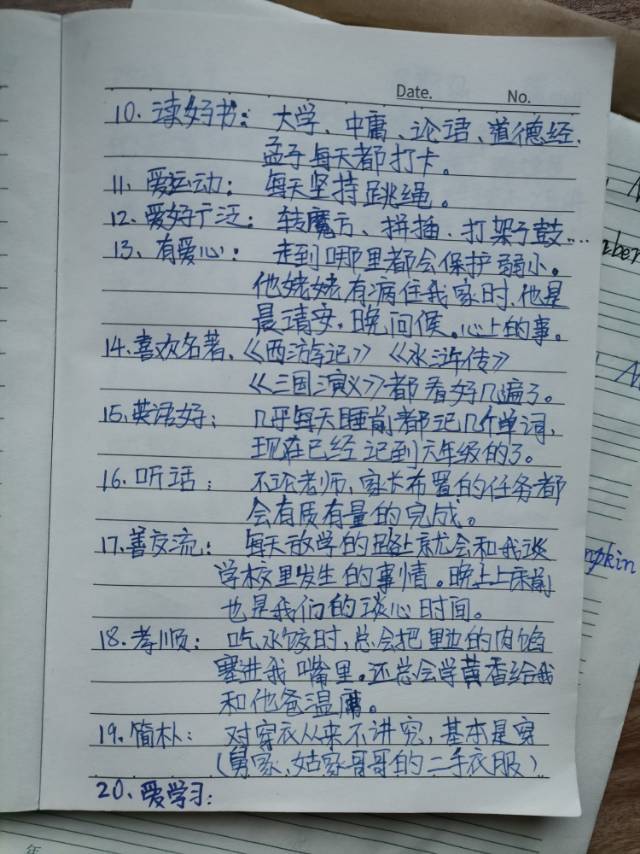 Date. No.
10. 读好书: 大学、中庸、论语、道德经、
孟子每天都打卡。
11. 爱运动: 每天坚持跳绳。
12. 爱好广泛: 转魔方、拼插、打架子鼓…
13. 有爱心: 走到哪里都会保护弱小。
他姥姥有病住我家时,他是
晨请安,晚问候。心上的事。
14. 喜欢名著,《西游记》《水浒传》
《三国演义》都看好几遍了。
15. 英语好: 几乎每天睡前都记几个单词,
现在已经记到六年级的了。
16. 听话: 不论老师,家长布置的任务都
会有质有量的完成。
17. 善交流: 每天放学的路上就会和我谈
学校里发生的事情。晚上上床前
也是我们的谈心时间。
18. 孝顺: 吃水饺时,总会把里边的肉馅
塞进我嘴里。还总会学黄香给我
和他爸温席。
19. 简朴: 对穿衣从来不讲究,基本是穿
(舅家,姑家哥哥的二手衣服)
20. 爱学习:
mber
mpkin
年